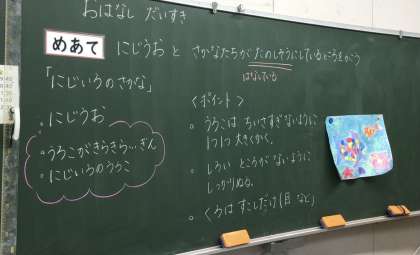 おはなし だいすき
めあて にじうおと さかなたちが たのしそうにしているところをかこう
はなしている
「にじいろのさかな」
。にじうお
。うろこがきらきら…ぎん
。にじいろのうろこ
<ポイント>
。うろこは ちいさすぎないように
1つ1つ大きくかく。
。しろい ところが ないように
しっかりぬる。
。くろは すこしだけ(目 など)